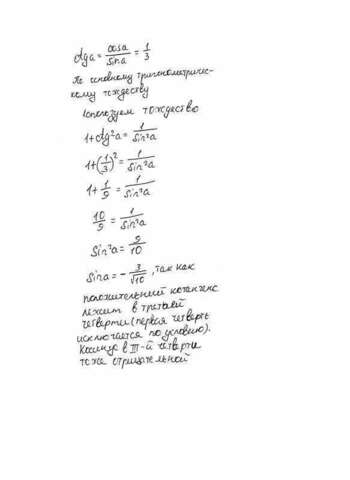 ctg a = cos a / sin a = 1/3
По основному тригонометричес-
кому тождеству
Используем тождество
1+ctg²a = 1/sin²a
1+(1/3)² = 1/sin²a
1+1/9 = 1/sin²a
10/9 = 1/sin²a
sin²a = 9/10
sin a = - 3/√10, так как
положительный котангенс
лежит в третьей
четверти (первая четверть
исключается по условию).
Косинус в III-й четверти
тоже отрицательной